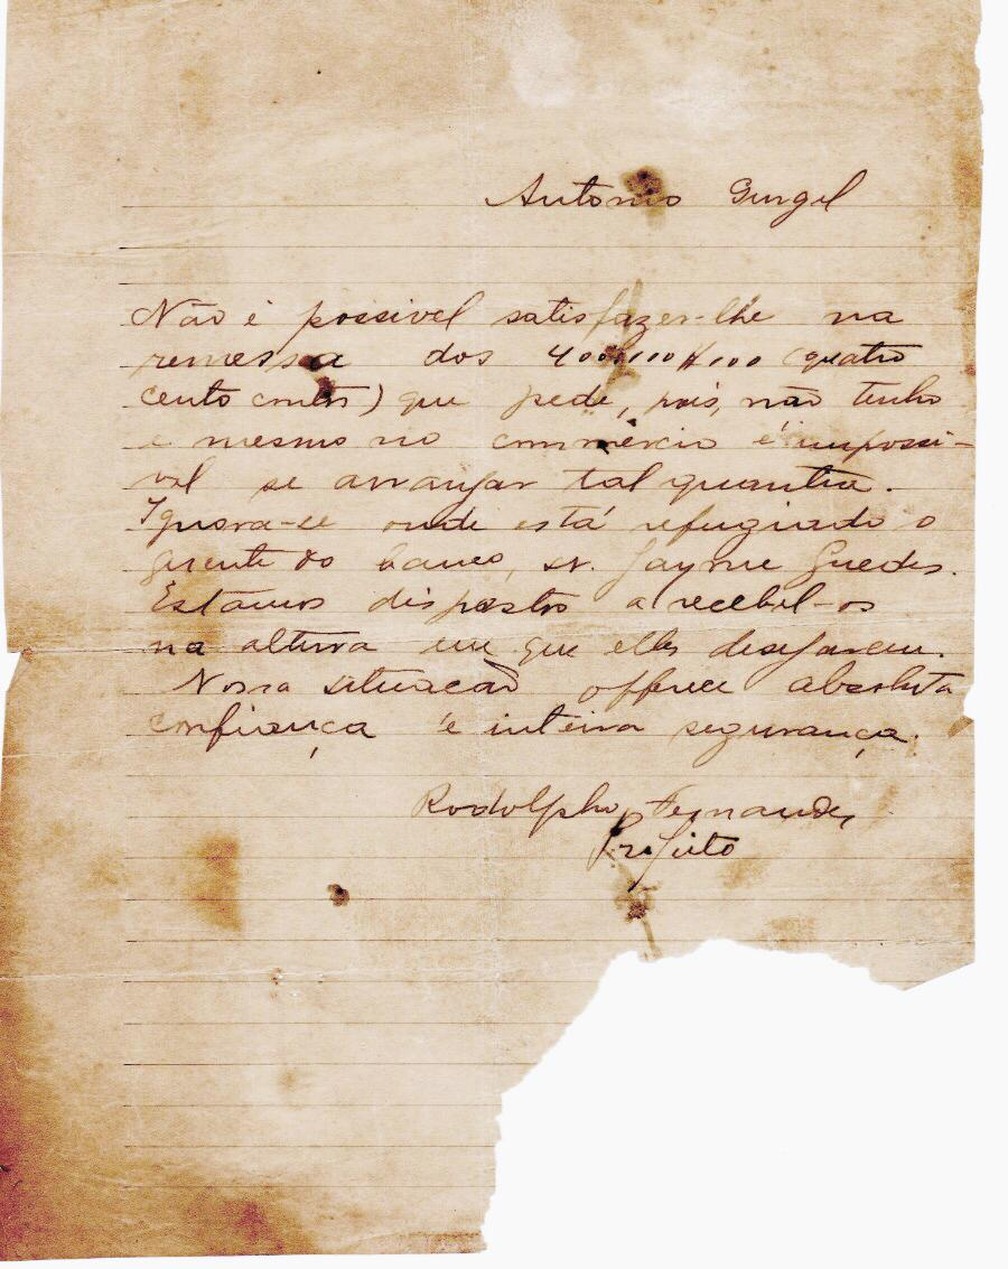 Antonio Gurgel
Não é possivel satisfazer-lhe na
remessa dos 400 (quatro
cento contos) que pede, pois, não tenho
e mesmo no commercio é impossi-
vel se arranjar tal quantia.
Ignora-se onde está refugiado o
gerente do banco, sr. Jayme Guedes.
Estamos dispostos a recebel-os
na altura em que elles desejarem.
Nossa situacão offerece absoluta
confiança e inteira segurança.
Rodolpho Fernandes
Prefeito